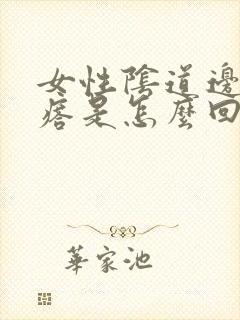 女性陰道邊
痞是怎麼回
華家池